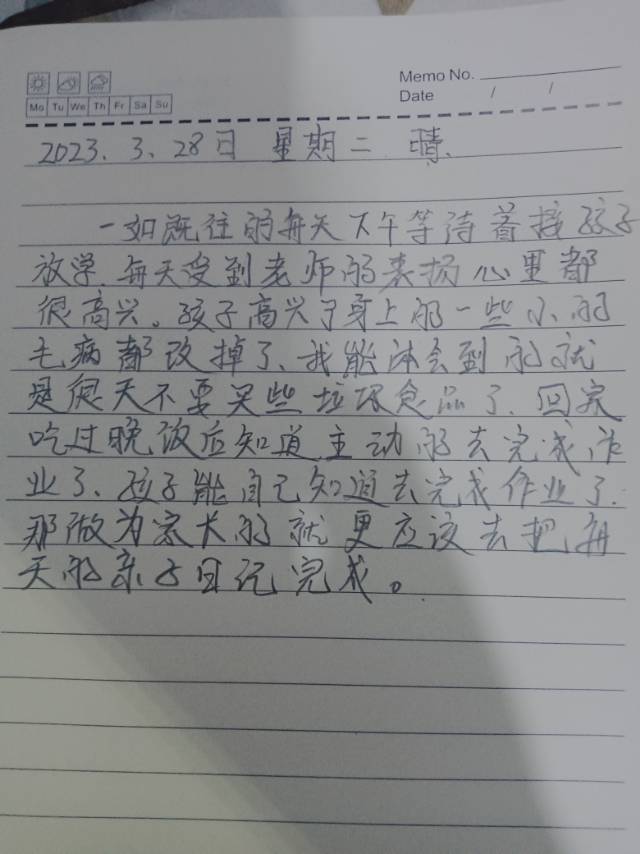 Memo No.
Mo Tu We Th Fr Sa Su
Date / /
2023. 3. 28日 星期二 晴.
一如既往的每天下午等待着接孩子
放学.每天受到老师的表扬心里都
很高兴。孩子高兴了身上的一些小的
毛病都改掉了、我能体会到的就
是很天不要买些垃圾食品了.回家
吃过晚饭后知道主动的去完成作
业了、孩子能自己知道去完成作业了.
那做为家长的就更应该去把每
天的亲子日记完成。